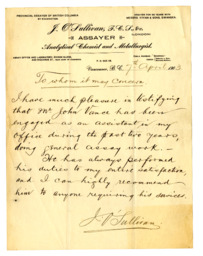 PROVINCIAL ASSAYER OF BRITISH COLUMBIA
J. O'Sullivan, F.C.S.
ASSAYER
Analytical Chemist and Metallurgist.
Vancouver, B.C. April
To whom it may concern
I have much pleasure in testifying
that Mr John Vance had been
engaged as an assistant in my
office during the past two years,
doing general assay work.
He has always performed
his duties to my entire satisfaction,
and I can highly recommend
him to anyone requiring his services.
J O'Sullivan